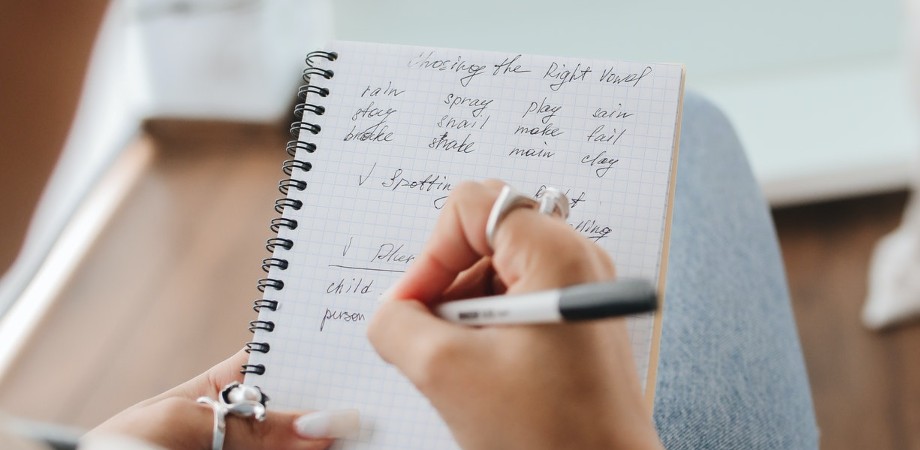 Chosing the Right Vowel
rain spray play sain
stay snail make fail
brake main clay
✓ Spotting
✓
child -
person